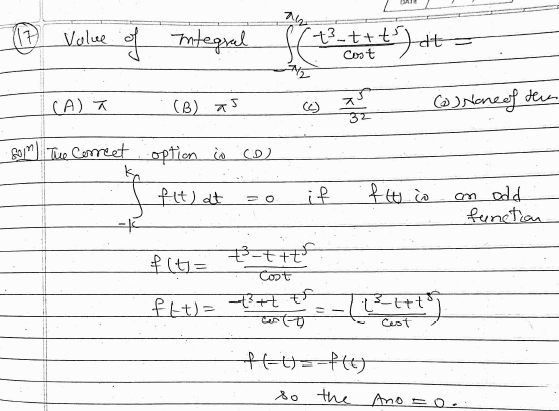 DATE
(17) Value of Integral ∫_{-π/2}^{π/2} ( (t³ - t + t⁵) / cost ) dt =
(A) π (B) π⁵ (c) π⁵/32 (D) None of
Solⁿ| The Correct option is (D)
∫_{-k}^{k} f(t) dt = 0 if f(t) is an odd function
f(t) = (t³ - t + t⁵) / cost
f(-t) = (-t³ + t t⁵) / cos(-t) = -( (t³ - t + t⁵) / cost )
f(-t) = -f(t)
so the Ans = 0.